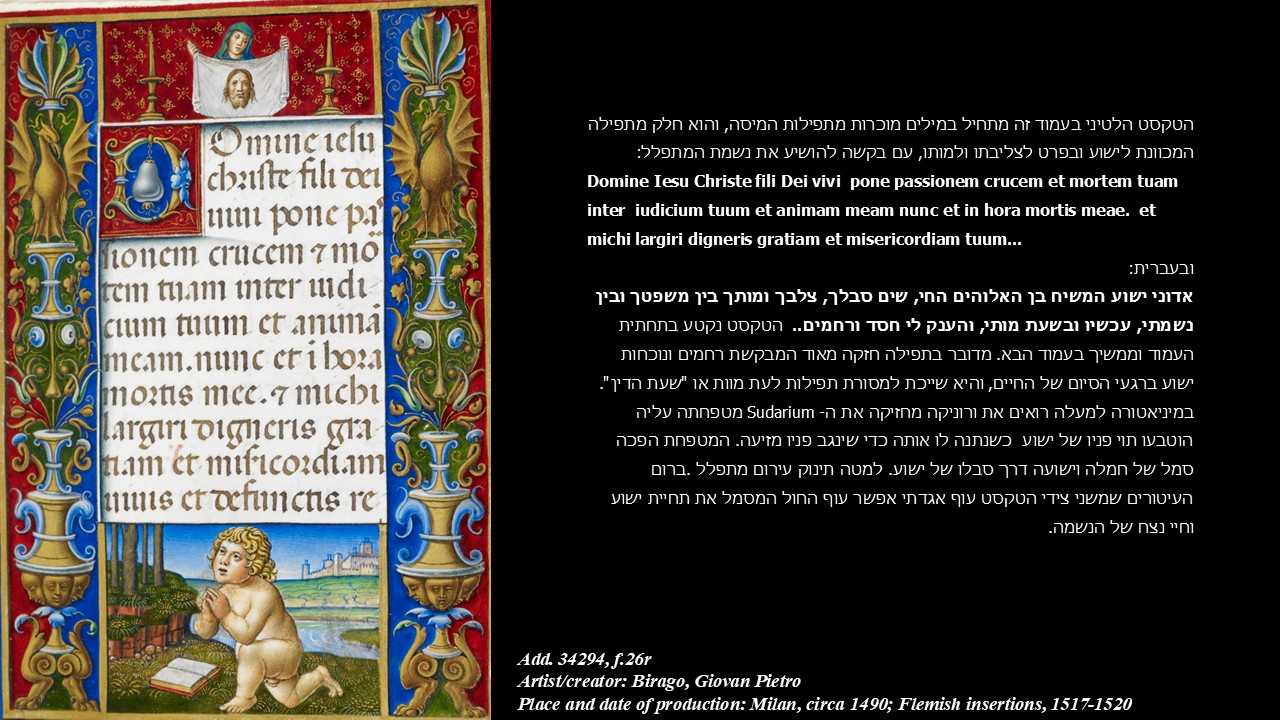 Omine iesu
christe fili dei
uiui pone pas
sionem crucem ⁊ mo
tem tuam inter iudi
cium tuum et animā
meam. nunc et ī hora
mortis mee. ⁊ michi
largiri digneris gra
tiam et misicordiam
uiuis et defunctis re
הטקסט הלטיני בעמוד זה מתחיל במילים מוכרות מתפילות המיסה, והוא חלק מתפילה
המכוונת לישוע ובפרט לצליבתו ולמותו, עם בקשה להושיע את נשמת המתפלל:
Domine Iesu Christe fili Dei vivi pone passionem crucem et mortem tuam
inter iudicium tuum et animam meam nunc et in hora mortis meae. et
michi largiri digneris gratiam et misericordiam tuum...
ובעברית:
אדוני ישוע המשיח בן האלוהים החי, שים סבלך, צלבך ומותך בין משפטך ובין
נשמתי, עכשיו ובשעת מותי, והענק לי חסד ורחמים.. הטקסט נקטע בתחתית
העמוד וממשיך בעמוד הבא. מדובר בתפילה חזקה מאוד המבקשת רחמים ונוכחות
ישוע ברגעי הסיום של החיים, והיא שייכת למסורת תפילות לעת מוות או "שעת הדין".
במיניאטורה למעלה רואים את ורוניקה מחזיקה את ה- Sudarium מטפחתה עליה
הוטבעו תוי פניו של ישוע כשנתנה לו אותה כדי שינגב פניו מזיעה. המטפחת הפכה
סמל של חמלה וישועה דרך סבלו של ישוע. למטה תינוק עירום מתפלל .ברום
העיטורים שמשני צידי הטקסט עוף אגדתי אפשר עוף החול המסמל את תחיית ישוע
וחיי נצח של הנשמה.
Add. 34294, f.26r
Artist/creator: Birago, Giovan Pietro
Place and date of production: Milan, circa 1490; Flemish insertions, 1517-1520